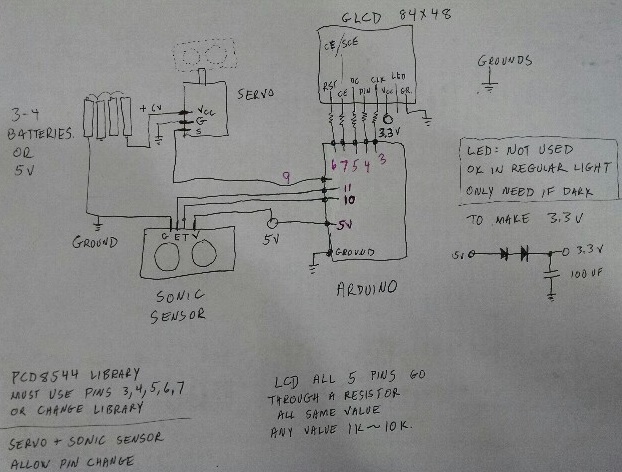 GLCD 84X48
CE/SCE
RST CE DC DIN CLK VCC LED GR.
3.3V
6 7 5 4 3
GROUNDS
SERVO
+6V
VCC
G
S
3-4
BATTERIES
OR
5V
9
11
10
5V
GROUND
ARDUINO
GROUND
G E T V
5V
SONIC
SENSOR
LED: NOT USED
OK IN REGULAR LIGHT
ONLY NEED IF DARK
TO MAKE 3.3V
5V
3.3V
100 UF
PCD8544 LIBRARY
MUST USE PINS 3,4,5,6,7
OR CHANGE LIBRARY
SERVO + SONIC SENSOR
ALLOW PIN CHANGE
LCD ALL 5 PINS GO
THROUGH A RESISTOR
ALL SAME VALUE
ANY VALUE 1K~10K.